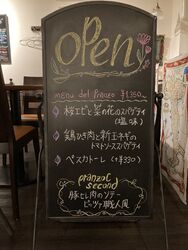 OPEN
menu del Pranzo ¥1,350
桜エビと菜の花のスパゲティ
(塩味)
鶏ひき肉と新玉ネギの
トマトソーススパゲティ
ペスカトーレ (+¥330)
pranzo C
second
豚ヒレ肉のソテー
ピッツァ職人風